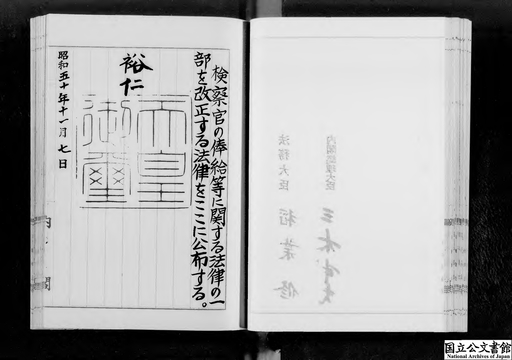 検察官の俸給等に関する法律の一
部を改正する法律をここに公布する。
裕仁
天皇
御璽
昭和五十年十一月七日
内閣
内閣総理大臣
法務大臣 稻葉修
国立公文書館
National Archives of Japan